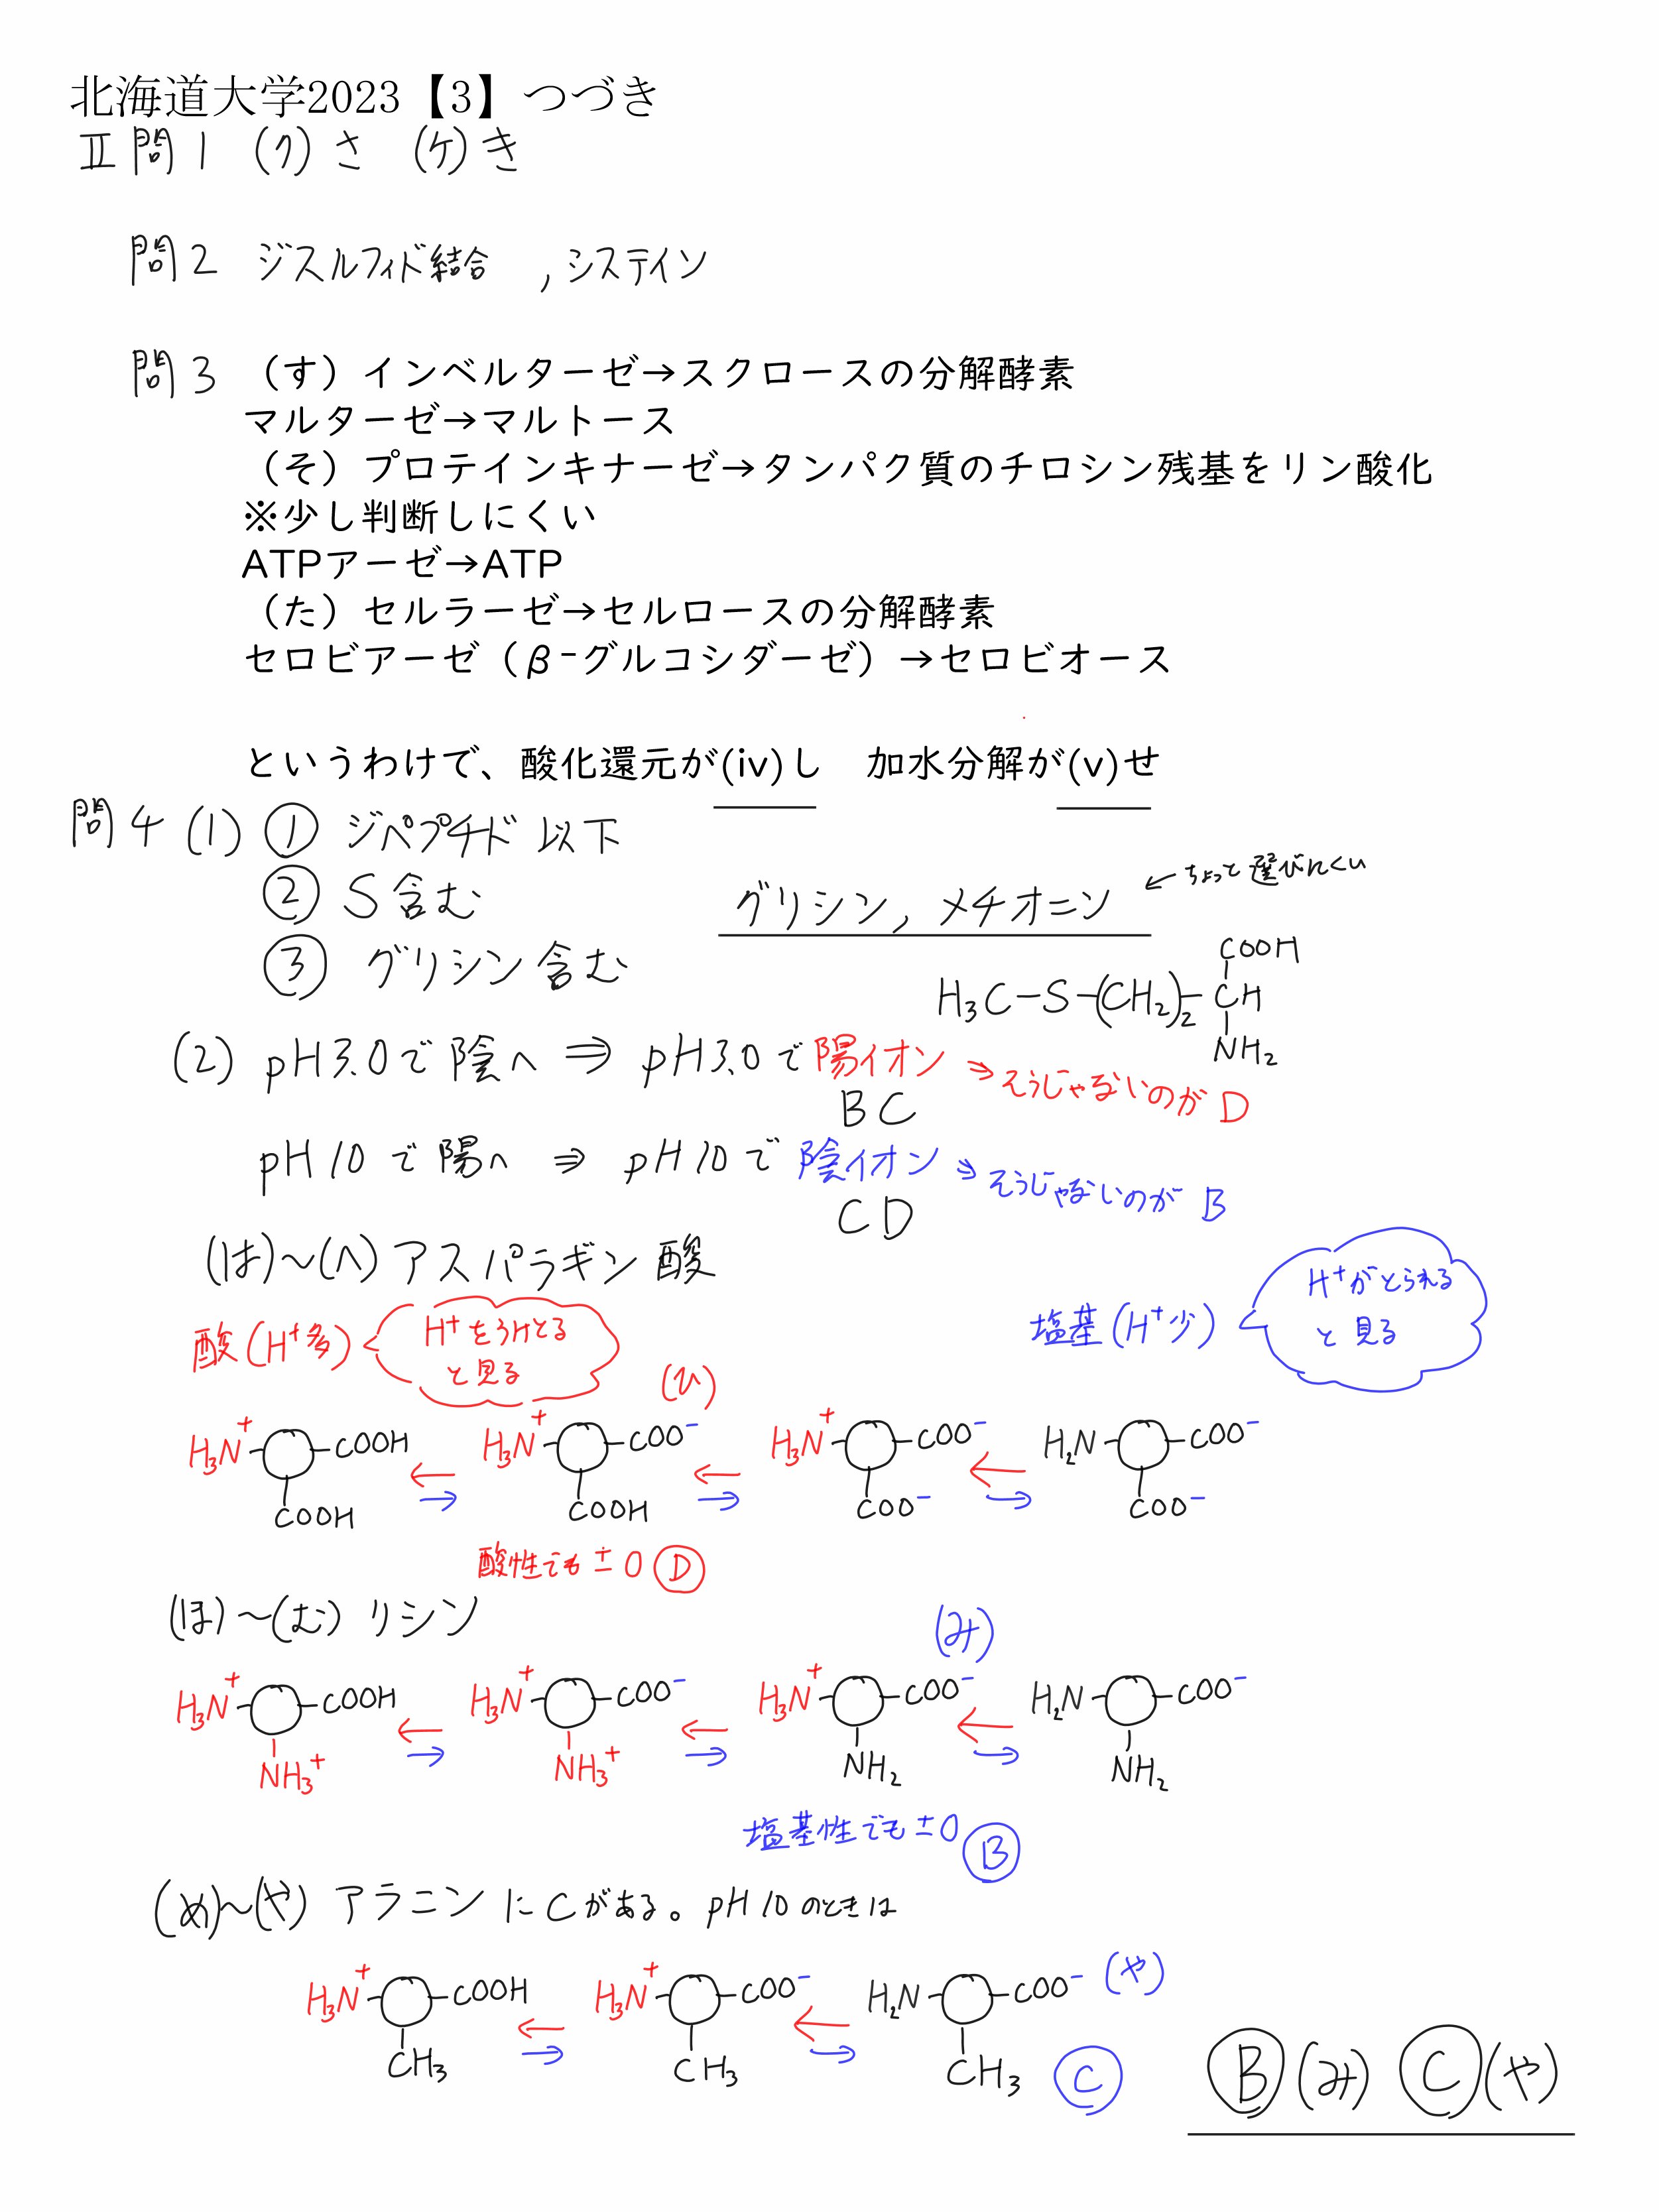 北海道大学2023【3】つづき
Ⅱ問1 (ク)さ (ケ)き
問2 ジスルフィド結合 ,システイン
問3 （す）インベルターゼ→スクロースの分解酵素
マルターゼ→マルトース
（そ）プロテインキナーゼ→タンパク質のチロシン残基をリン酸化
※少し判断しにくい
ATPアーゼ→ATP
（た）セルラーゼ→セルロースの分解酵素
セロビアーゼ（β-グルコシダーゼ）→セロビオース
というわけで、酸化還元が(iv)し 加水分解が(v)せ
問4 (1) ① ジペプチド以下
② S含む
グリシン, メチオニン ← ちょっと選びにくい
③ グリシン含む
H3C-S-(CH2)2-CH
COOH
NH2
(2) pH3.0で陰へ ⇒ pH3.0で陽イオン ⇒ そうじゃないのが D
BC
pH10で陽へ ⇒ pH10で陰イオン ⇒ そうじゃないのが B
CD
(は)～(へ) アスパラギン酸
酸(H+多) H+をうけとると見る
塩基(H+少) H+がとられると見る
(ひ)
H3N+ COOH ← → H3N+ COO- ← → H3N+ COO- ← → H2N COO-
COOH COOH COO- COO-
酸性でも±0 Ⓓ
(ほ)～(む) リシン
(み)
H3N+ COOH ← → H3N+ COO- ← → H3N+ COO- ← → H2N COO-
NH3+ NH3+ NH2 NH2
塩基性でも±0 Ⓑ
(め)～(や) アラニンにCがある。pH10のときは
H3N+ COOH ← → H3N+ COO- ← → H2N COO- (や)
CH3 CH3 CH3 Ⓒ
Ⓑ(み) Ⓒ(や)